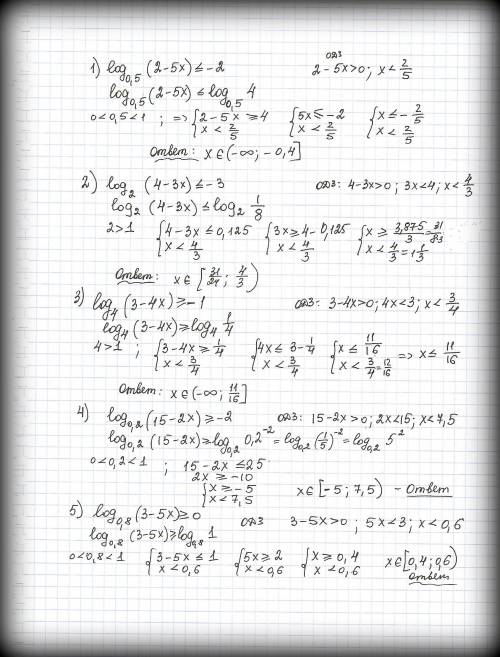 1) log₀,₅(2-5x) ≤ -2     ОДЗ 2-5x>0; x < 2/5
log₀,₅(2-5x) ≤ log₀,₅ 4
0<0,5<1; => {2-5x ≥ 4  x < 2/5   {5x ≤ -2  x < 2/5   {x ≤ -2/5  x < 2/5
Ответ: x∈(-∞; -0,4]
2) log₂(4-3x) ≤ -3     ОДЗ: 4-3x>0; 3x<4; x < 4/3
log₂(4-3x) ≤ log₂ 1/8
2>1   {4-3x ≤ 0,125  x < 4/3   {3x ≥ 4-0,125  x < 4/3   {x ≥ 3,875/3 =  x < 4/3 = 1 1/3
Ответ: x∈[31/24; 4/3)
3) log₄(3-4x) ≥ -1     ОДЗ: 3-4x>0; 4x<3; x < 3/4
log₄(3-4x) ≥ log₄ 1/4
4>1;   {3-4x ≥ 1/4  x < 3/4   {4x ≤ 3-1/4  x < 3/4   {x ≤ 11/16  x < 3/4 = 12/16   => x ≤ 11/16
Ответ: x∈(-∞; 11/16]
4) log₀,₂(15-2x) ≥ -2     ОДЗ: 15-2x>0; 2x<15; x<7,5
log₀,₂(15-2x) ≥ log₀,₂ 0,2⁻² = log₀,₂(1/5)⁻² = log₀,₂ 5²
0<0,2<1; 15-2x ≤ 25
2x ≥ -10
{x ≥ -5  x < 7,5     x∈[-5; 7,5) - Ответ
5) log₀,₈(3-5x) ≥ 0     ОДЗ 3-5x>0; 5x<3; x<0,6
log₀,₈(3-5x) ≥ log₀,₈ 1
0<0,8<1   {3-5x ≤ 1  x < 0,6   {5x ≥ 2  x < 0,6   {x ≥ 0,4  x < 0,6     x∈[0,4; 0,6)
Ответ